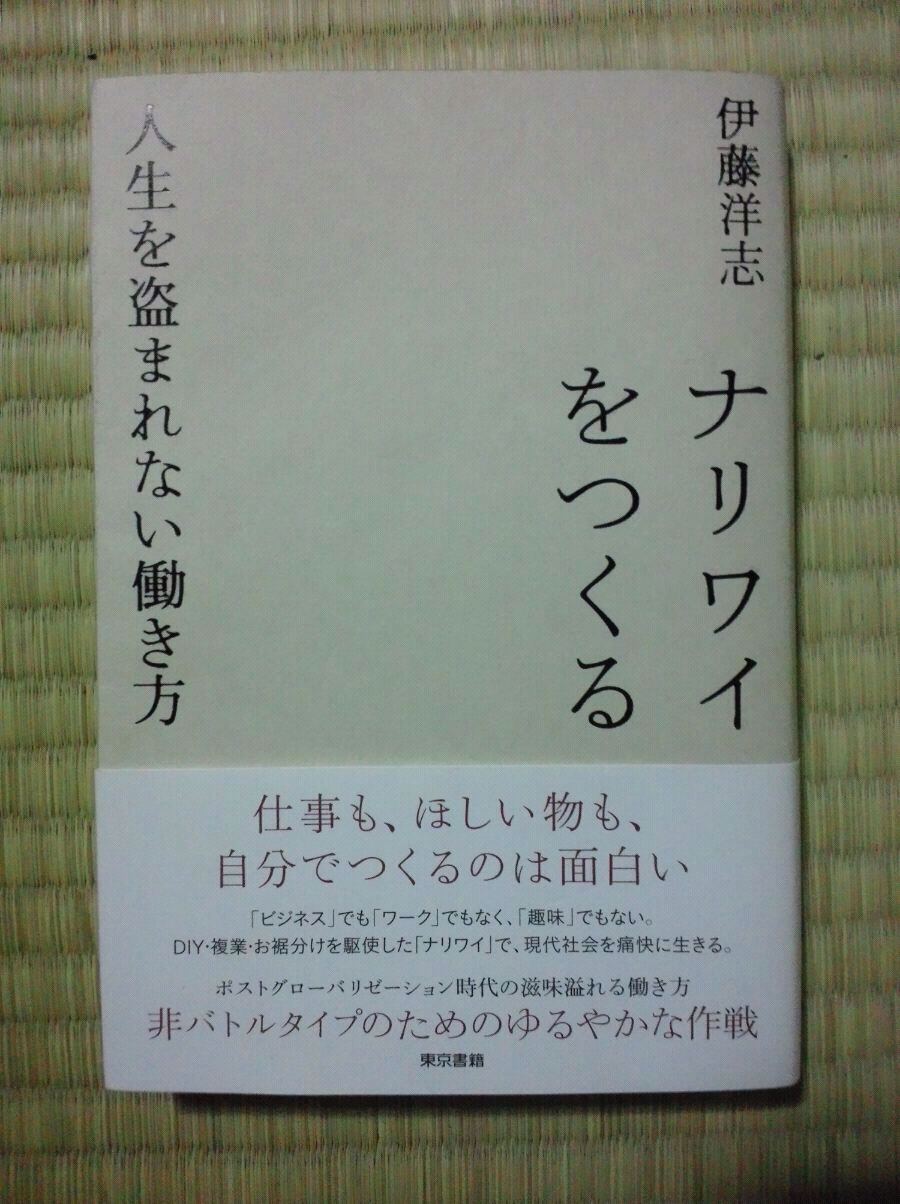 伊藤洋志
ナリワイ
をつくる
人生を盗まれない働き方
仕事も、ほしい物も、
自分でつくるのは面白い
「ビジネス」でも「ワーク」でもなく、「趣味」でもない。
DIY・複業・お裾分けを駆使した「ナリワイ」で、現代社会を痛快に生きる。
ポストグローバリゼーション時代の滋味溢れる働き方
非バトルタイプのためのゆるやかな作戦
東京書籍